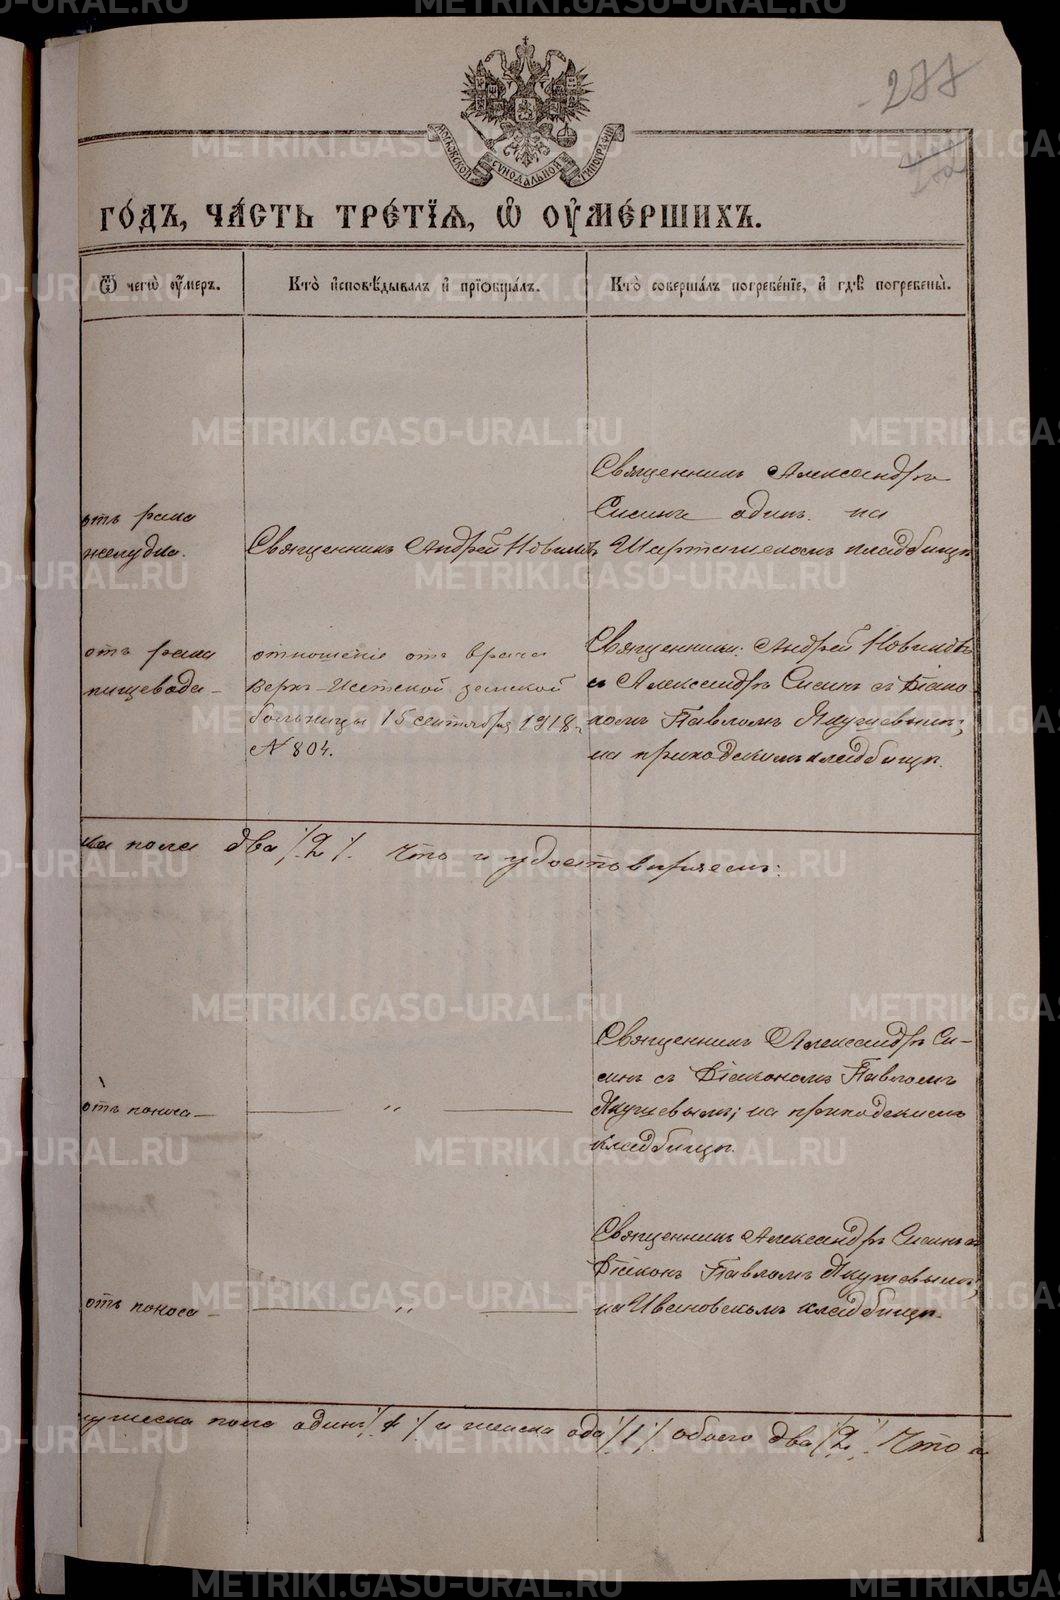 277
МОСКОВСКОЙ СѴНОДАЛЬНОЙ ТИПОГРАФІИ
ГО́ДЪ, ЧА́СТЬ ТРЕ́ТІЯ, Ѡ҆ ОУ҆МЕ́РШИХЪ.
Ѿ чегѡ̀ оу҆́меръ.
Кто̀ и҆сповѣ́дывалъ и҆ прїѡбща́лъ.
Кто̀ соверша́лъ погребе́нїе, и҆ гдѣ̀ погребены̀.
отъ рака
желудка.
Священникъ Андрей Новиковъ
Священникъ Александръ
Сисинъ одинъ на
Шарташскомъ кладбищѣ
отъ рака
пищевода –
отношеніе отъ врача
Верх-Исетской земской
больницы 15 сентября 1918 г.
№ 804.
Священники: Андрей Новиковъ
и Александръ Сисинъ съ Діако-
номъ Павломъ Якушевымъ;
на приходскомъ кладбищѣ.
на пола два /2/. Что и удостовѣряемъ:
отъ поноса –
— „ —
Священникъ Александръ Си-
синъ съ Діакономъ Павломъ
Якушевымъ; на приходскомъ
кладбищѣ.
отъ поноса –
— „ —
Священникъ Александръ Сисинъ съ
Діакон Павломъ Якушевымъ,
на Ивановскомъ кладбищѣ.
мужеска пола одинъ /1/ и женска одна /1/ обоего два /2/. Что и
METRIKI.GASO-URAL.RU